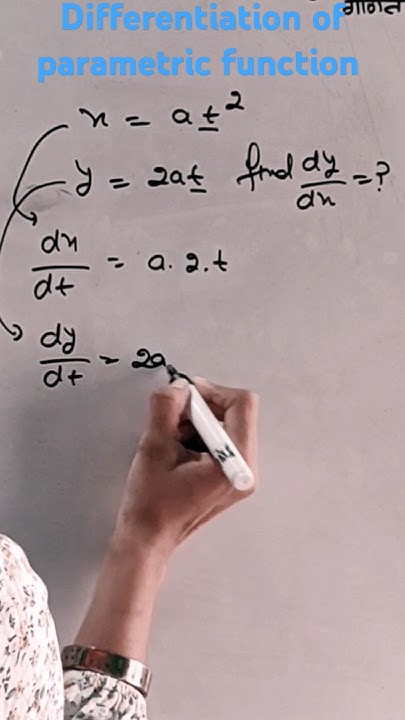 Differentiation of
parametric function
गणित
x = at²
y = 2at find dy/dx = ?
dx/dt = a.2.t
dy/dt = 2a